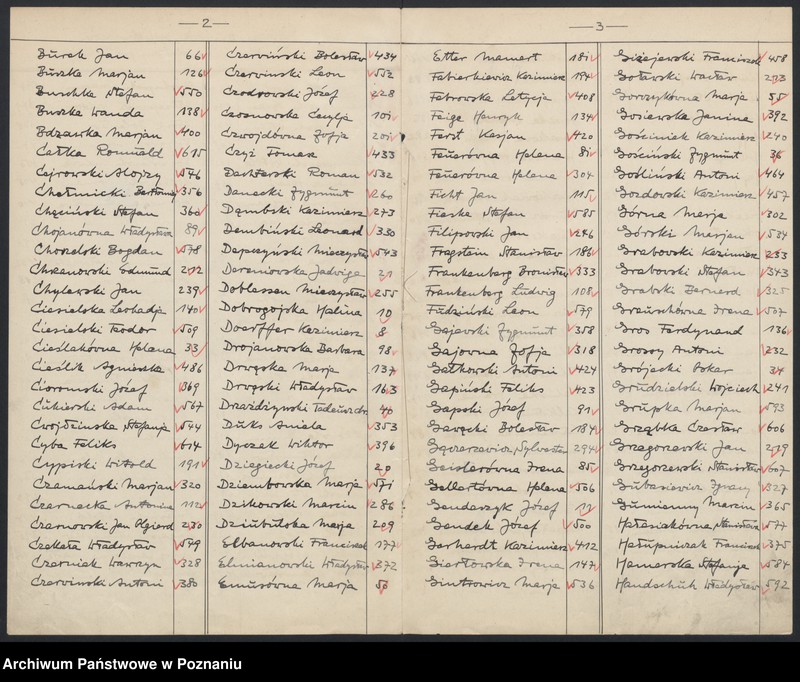 — 2 —
Burek Jan 66
Buszka Marjan 126
Buschka Stefan 550
Buszka Wanda 138
Bdzawka Marjan 400
Całka Romuald 615
Cejrowski Alojzy 546
Chełmicki Bartłomiej 356
Chęciński Stefan 360
Chojanówna Władysława 89
Choselski Bogdan 578
Chrzanowski Edmund 212
Chylewski Jan 239
Ciesielska Leokadja 140
Ciesielski Teodor 509
Cieślakówna Helena 33
Cieślik Agnieszka 486
Cioromski Józef 369
Cukierski Adam 567
Cwojdzińska Stefanja 544
Cyba Feliks 614
Cypiski Witold 191
Czamański Marjan 320
Czarnecka Antonina 112
Czarnowski Jan Olgierd 230
Czekała Władysław 549
Czerniak Wawrzyn 328
Czerwiński Antoni 380
Czerwiński Bolesław 434
Czerwinski Leon 552
Czodrowski Józef 228
Czosnowska Cecylja 101
Czwojdówna Zofja 201
Czyż Tomasz 433
Dachterski Roman 532
Danecki Zygmunt 260
Dąmbski Kazimierz 273
Dembiński Leonard 330
Depczyński Mieczysław 543
Dereniowska Jadwiga 21
Doblessen Mieczysław 255
Dobrogojska Halina 10
Doerffer Kazimierz 8
Drojanowska Barbara 98
Drwęska Marja 137
Drwęski Władysław 163
Drażdżyński Tadeusz dr. 40
Duks Aniela 353
Dyczak Wiktor 396
Dziagiecki Józef 20
Dziembowska Marja 571
Dzikowski Marcin 286
Dziubulska Marja 209
Elbanowski Franciszek 177
Elmianowski Władysław 372
Emusówna Marja 50
— 3 —
Etter Mamert 181
Fabierkiewicz Kazimierz 194
Fabrowska Letycja 408
Feige Henryk 134
Ferst Kasjan 420
Feuerówna Helena 81
Feuerówna Helena 304
Ficht Jan 115
Fieske Stefan 585
Filipowski Jan 246
Fragstein Stanisław 186
Frankenberg Bronisław 333
Frankenberg Ludwig 108
Fudziński Leon 579
Gajewski Zygmunt 358
Gajowna Zofja 318
Gałkowski Antoni 424
Gapiński Feliks 423
Gapski Józef 91
Gawęcki Bolesław 184
Gączerzewicz Sylwester 294
Geislerówna Irena 85
Gellertówna Helena 506
Gendarzyk Józef 11
Gendek Józef 500
Gerhardt Kazimierz 412
Giertowska Irena 147
Gintrowicz Marja 536
Giżejewski Franciszek 458
Goławski Wacław 293
Gorczykówna Marja 55
Gosiewska Janina 392
Gościniek Kazimierz 240
Gościński Zygmunt 36
Gośliński Antoni 464
Gozdowski Kazimierz 457
Górna Marja 302
Górski Marjan 534
Grabowski Kazimierz 233
Grabowski Stefan 343
Grabski Bernard 325
Graunhówna Irena 507
Gros Ferdynand 136
Grossy Antoni 232
Grójecki Oskar 34
Grudzielski Wojciech 241
Grupka Marjan 593
Grząbka Czesław 606
Grzegorzewski Jan 219
Grzegorzewski Stanisław 607
Gubasiewicz Ignacy 327
Gumienny Marcin 365
Hałasiakówna Stanisława 577
Hałupniczak Franciszek 375
Hamerska Stefanja 584
Handschuh Władysław 592
Archiwum Państwowe w Poznaniu